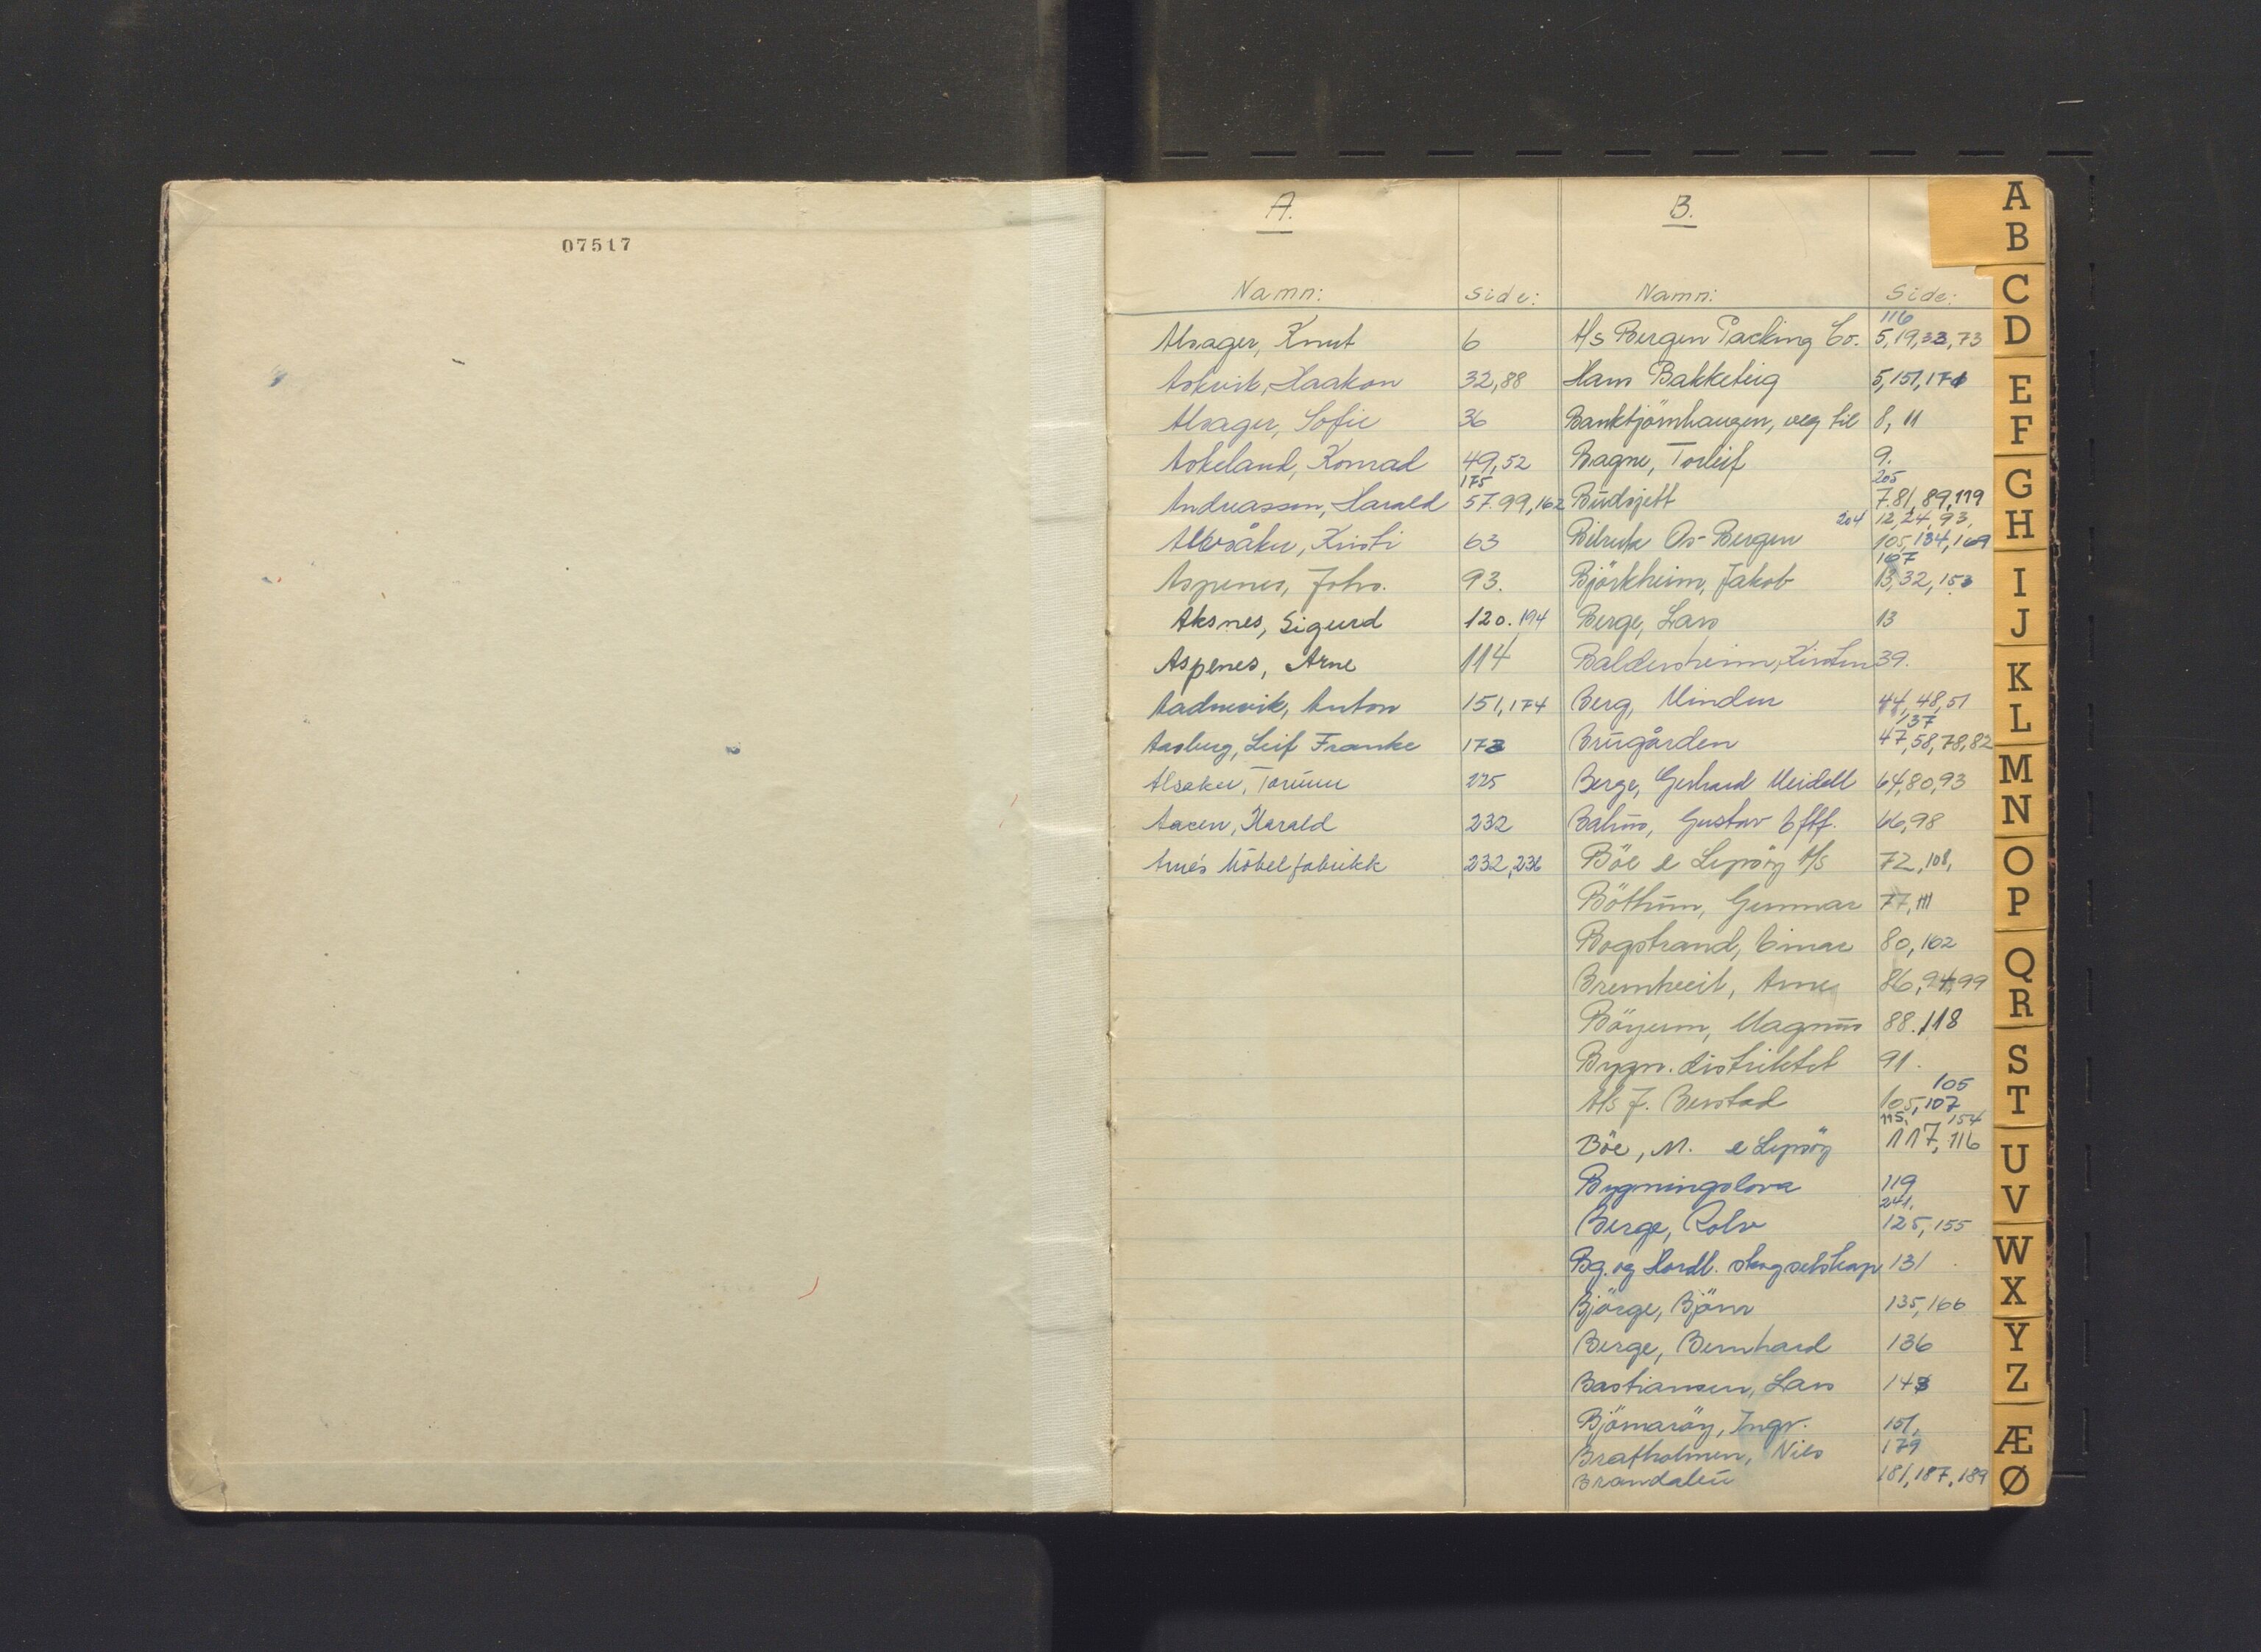 07517
A.
Namn: Side:
Alsager, Knut 6
Askvik, Haakon 32,88
Alsager, Sofie 36
Askeland, Konrad 49,52
175
Andreassen, Harald 57.99,162
Alsåker, Kristi 63
Aspenes, Johs. 93.
Aksnes, Sigurd 120.194
Aspenes, Arne 114
Aadnevik, Anton 151,174
Aasberg, Leif Franke 173
Alsaker, Torunn 225
Aasen, Harald 232
Arne's Möbelfabrikk 232,236
B.
Namn: Side:
116
A/s Bergen Packing Co. 5,19,33,73
Hans Bakketeig 5,151,171
Banktjörnhaugen, veg til 8, 11
Bagne, Torleif 9.
205
Budsjett 7.81,89,119
204 12,24,93,
Bilrute Os-Bergen 105,134,169
167
Björkheim, Jakob 13,32,153
Berge, Lars 13
Baldersheim, Kirsten 39.
Berg, Mindor 44,48,51
137
Brugården 47,58,78,82
Berge, Gerhard Meidell 64,80,93
Bahus, Gustav Eftf. 66,98
Böe & Lepsöy A/s 72,108,
Böthun, Gunnar 77,111
Bogstrand, Einar 80,162
Bremtveit, Arne 86,94,99
Böyum, Magnus 88.118
Bygn. distriktet 91.
105
A/s J. Berstad 105,107
115, 154
Böe, M. & Lepsöy 117,116
Bygningslova 119
241.
Berge, Rolv 125,155
Bg. og Hordl. skogselskap 131
Björge, Björn 135,166
Berge, Bernhard 136
Bastiansen, Lars 143
Björnaröy, Ingv. 151,
Bratholmen, Nils 179
Brandaleu 181,187,189
A
B
C
D
E
F
G
H
I
J
K
L
M
N
O
P
Q
R
S
T
U
V
W
X
Y
Z
Æ
Ø